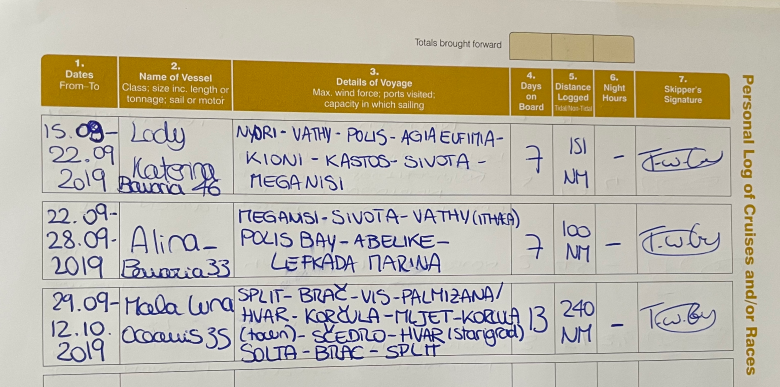 Totals brought forward
1.
Dates
From–To
2.
Name of Vessel
Class; size inc. length or
tonnage; sail or motor
3.
Details of Voyage
Max. wind force; ports visited;
capacity in which sailing
4.
Days
on
Board
5.
Distance
Logged
Tidal/Non-Tidal
6.
Night
Hours
7.
Skipper's
Signature
Personal Log of Cruises and/or Races
15.09–
22.09
2019
Lady
Katerina
Bavaria 46
NYDRI - VATHY - POLIS - AGIA EUFIMIA -
KIONI - KASTOS - SIVOTA -
MEGANISI
7
151
NM
–
22.09-
28.09-
2019
Alina
Bavaria 33
MEGANISI - SIVOTA - VATHY (ITHAEA)
POLIS BAY - ABELIKE -
LEFKADA MARINA
7
100
NM
–
29.09-
12.10.
2019
Luna
35
SPLIT - BRAČ - VIS - PALMIZANA/
HVAR - KORČULA - MLJET - KORCULA
(town) - SČEDRO - HVAR (starigrad)
SOLTA - BRAC - SPLIT
13
240
NM
–